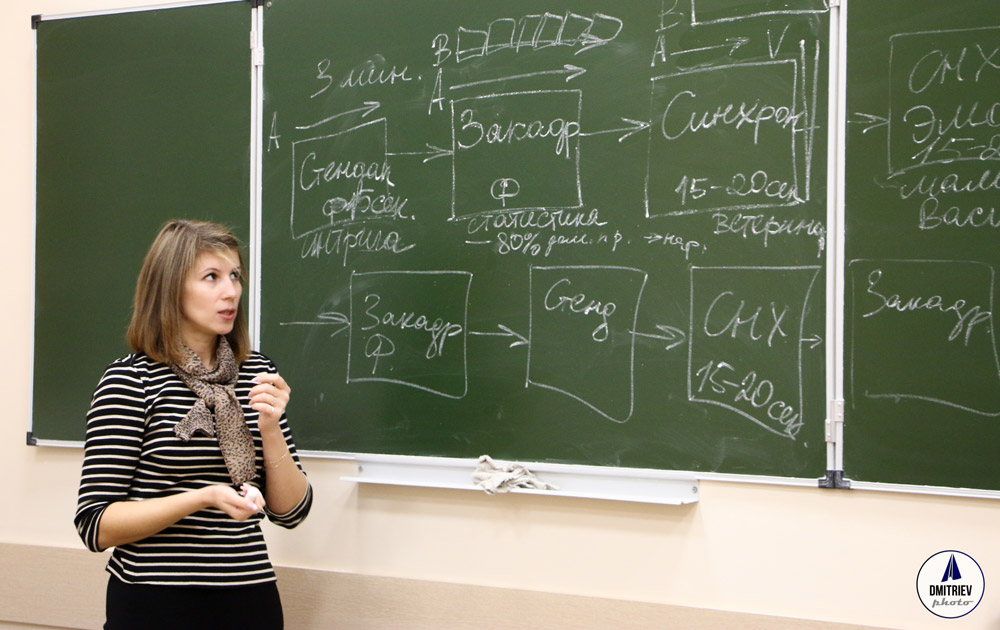 3 мин.
В
А
А
В
А
V
Стендап
15 сек.
интрига
Закадр
Ф
статистика
– 80% дом. пр. → нар.
Синхрон
15-20 сек
ветерина
СНХ
ЭМО
15-2
мал
Васи
Закадр
Ф
Стенд
СНХ
15-20 сек.
Закадр
DMITRIEV
photo